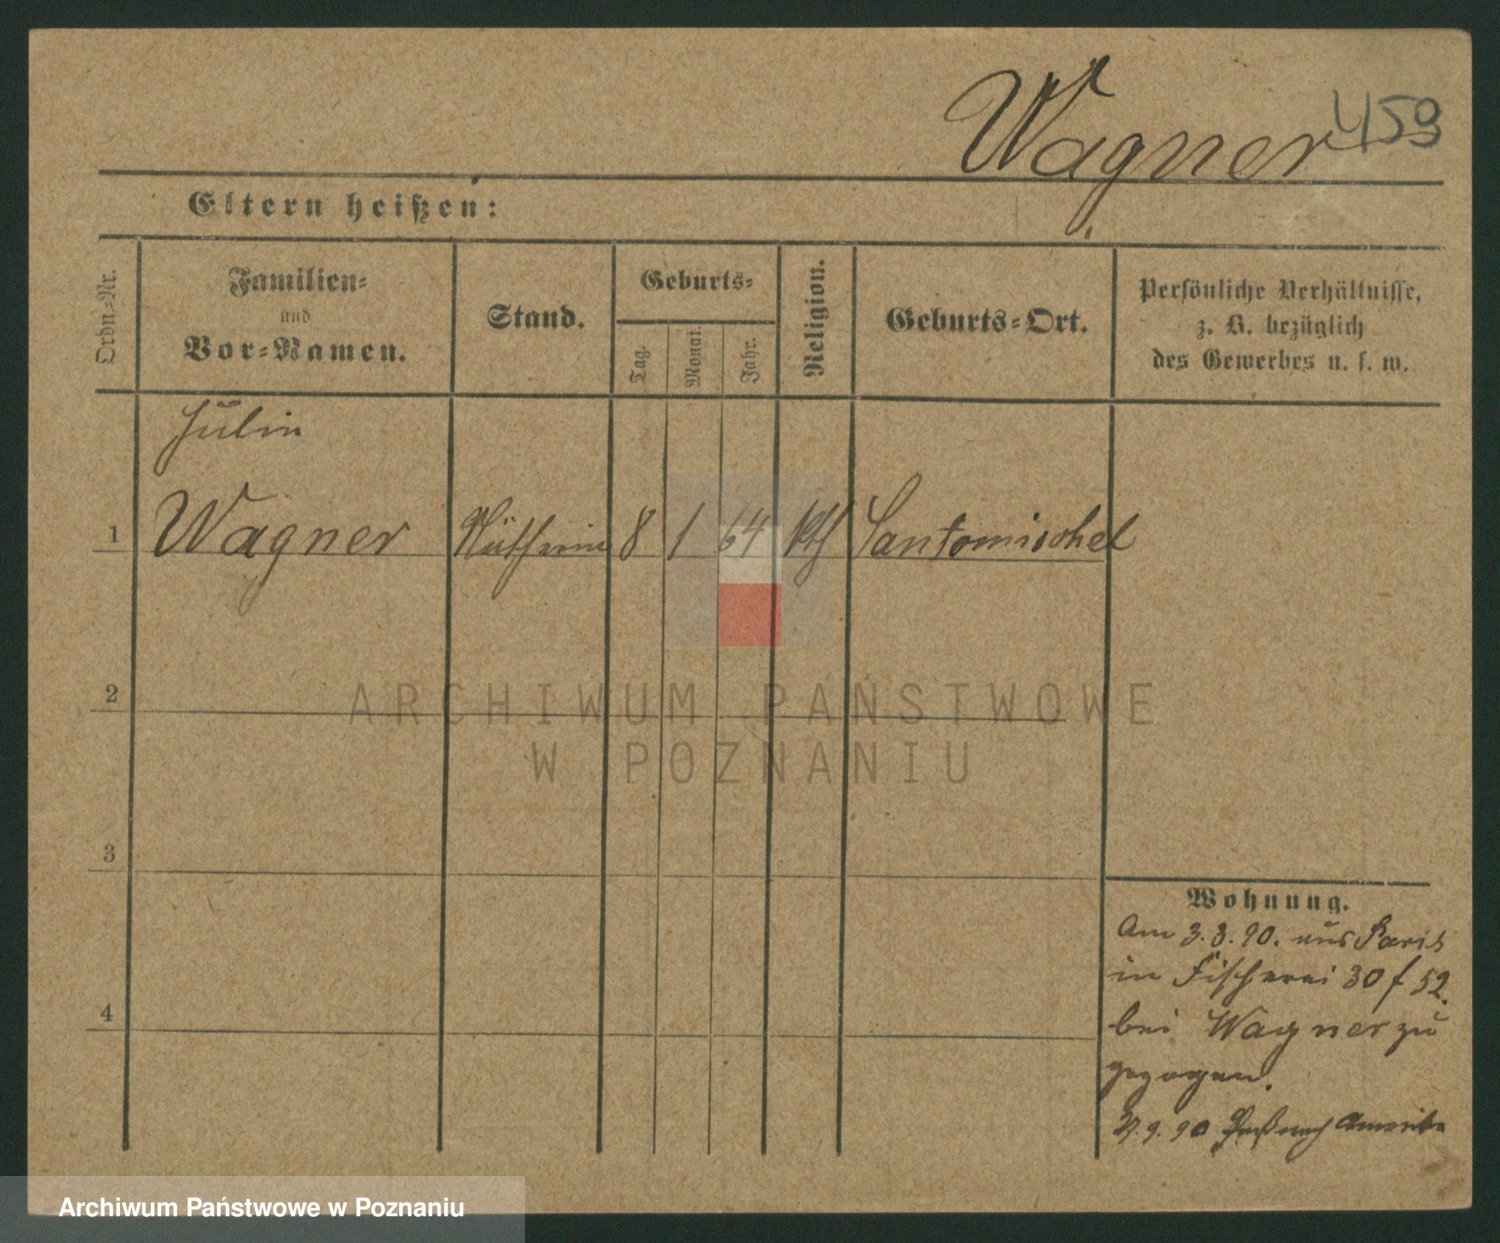 Wagner 459
Eltern heißen:
Ordn.-Nr.
Familien-
und
Vor-Namen.
Stand.
Geburts-
Tag.
Monat.
Jahr.
Religion.
Geburts-Ort.
Persönliche Verhältnisse,
z. B. bezüglich
des Gewerbes u. s. w.
Julia
1 Wagner Näherin 8 1 64 kth Santomischel
2
3
4
Wohnung.
Am 3.3.90. aus Paris
in Fischerei 30 f 52.
bei Wagner zu
gezogen.
9. 90 Paß nach Amerika
ARCHIWUM PAŃSTWOWE
W POZNANIU
Archiwum Państwowe w Poznaniu